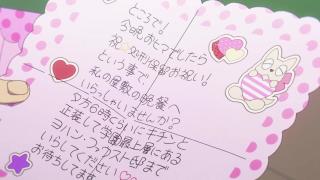 ところで!
今晩おヒマでしたら
祝♡処刑保留お祝い!
という事で
私の屋敷の晩餐へ
いらっしゃいませんか?
夕方6時くらいにキチンと
正装して学園最上層にある
ヨハン・ファウスト邸まで
いらしてください♡
お待ちしてます